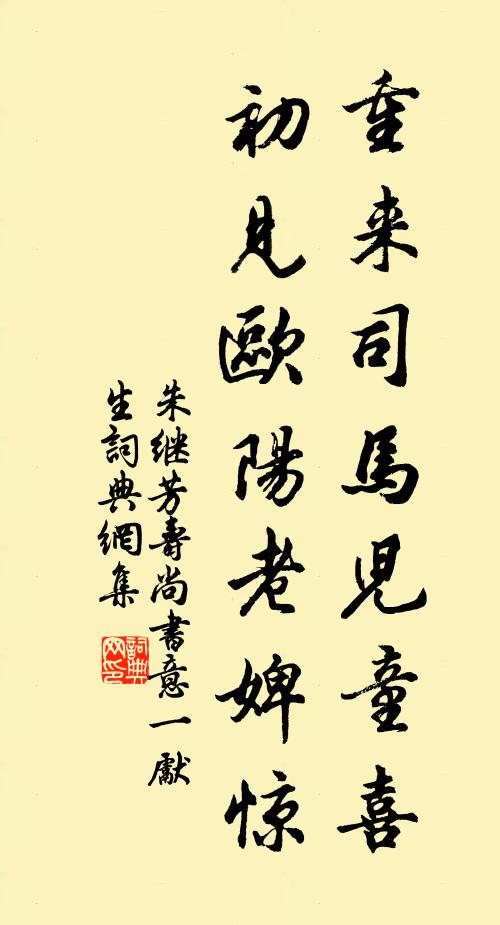 重来司馬児童喜
初見歐陽老婢惊
朱继芳壽尚書意一獻
生詞典網集
詞典
网印